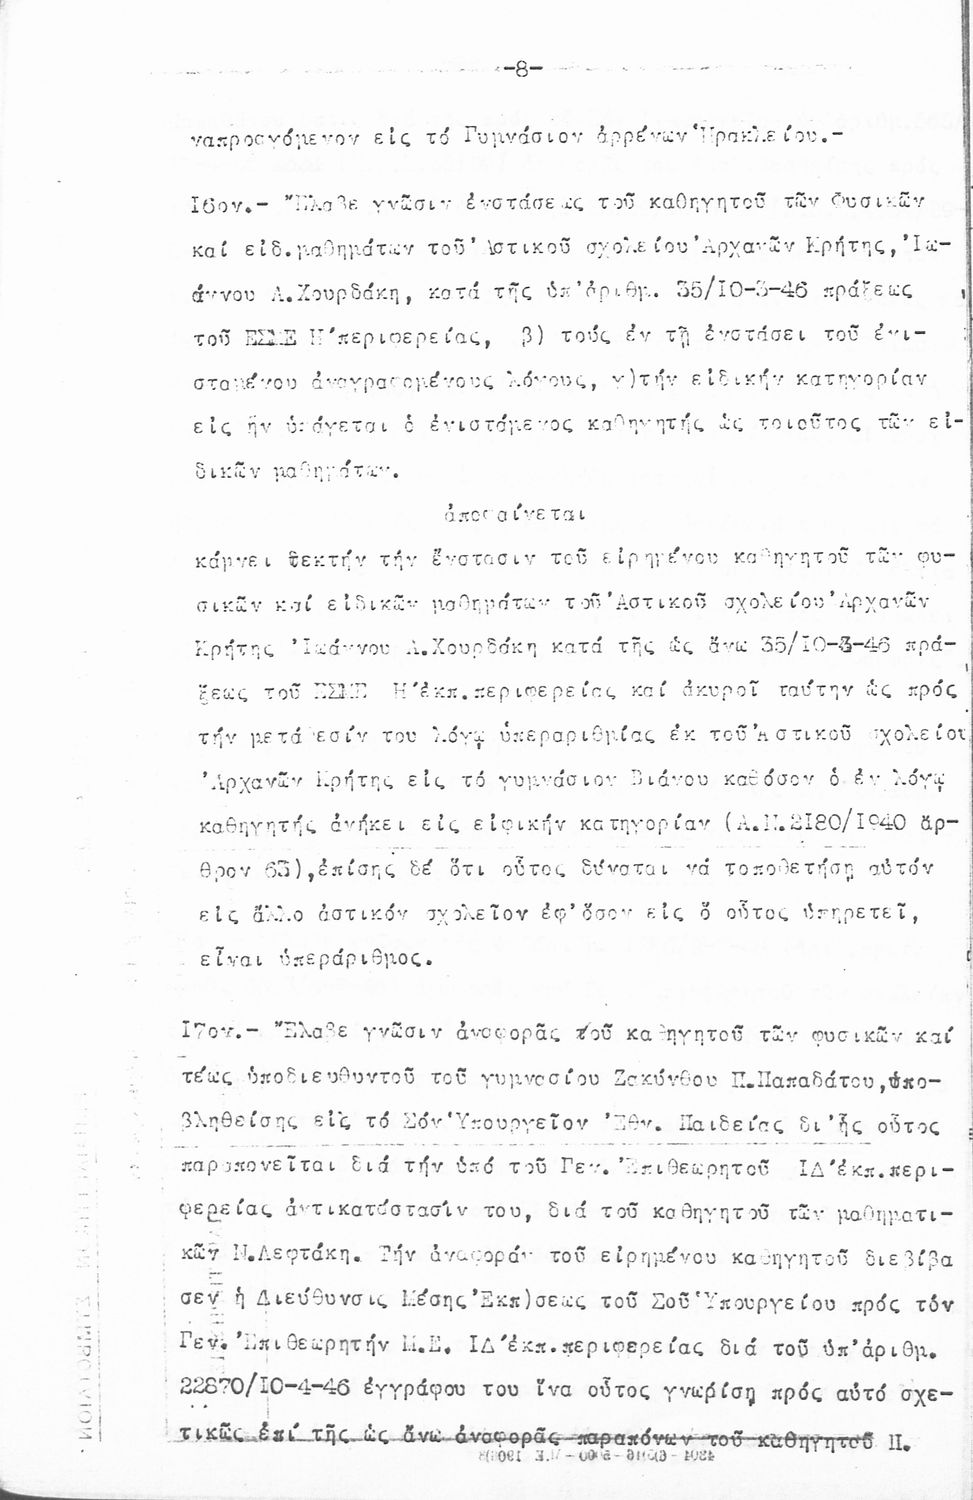 -8-
ναπροσγόμενον εἰς τό Γυμνάσιον ἀρρένων Ἡρακλείου.-
I6ον.- Ἔλαβε γνῶσιν ἐνστάσεως τοῦ καθηγητοῦ τῶν Φυσικῶν
καί εἰδ.μαθημάτων τοῦ Ἀστικοῦ σχολείου Ἀρχανῶν Κρήτης, Ἰω-
άννου Α.Χουρδάκη, κατά τῆς ὑπ'ἀριθμ. 35/IO-3-46 πράξεως
τοῦ ΕΣΜΕ Η΄περιφερείας, β) τούς ἐν τῇ ἐνστάσει τοῦ ἐνι-
σταμένου ἀναγραφομένους λόγους, γ)τήν εἰδικήν κατηγορίαν
εἰς ἥν ὑπάγεται ὁ ἐνιστάμενος καθηγητής ὡς τοιοῦτος τῶν εἰ-
δικῶν μαθημάτων.
ἀποφαίνεται
κάμνει δεκτήν τήν ἔνστασιν τοῦ εἰρημένου καθηγητοῦ τῶν φυ-
σικῶν καί εἰδικῶν μαθημάτων τοῦ Ἀστικοῦ σχολείου Ἀρχανῶν
Κρήτης Ἰωάννου Α.Χουρδάκη κατά τῆς ὡς ἄνω 35/IO-3-46 πρά-
ξεως τοῦ ΕΣΜΕ Η΄ἐκπ.περιφερείας καί ἀκυροῖ ταύτην ὡς πρός
τήν μετάθεσίν του λόγῳ ὑπεραριθμίας ἐκ τοῦ Ἀστικοῦ σχολείου
Ἀρχανῶν Κρήτης εἰς τό γυμνάσιον Βιάνου καθόσον ὁ ἐν λόγῳ
καθηγητής ἀνήκει εἰς εἰφικήν κατηγορίαν (Α.Ν.2I80/I940 ἄρ-
θρον 63),ἐπίσης δέ ὅτι οὗτος δύναται νά τοποθετήσῃ αὐτόν
εἰς ἄλλο ἀστικόν σχολεῖον ἐφ'ὅσον εἰς ὅ οὗτος ὑπηρετεῖ,
εἶναι ὑπεράριθμος.
I7ον.- Ἔλαβε γνῶσιν ἀναφορᾶς τοῦ καθηγητοῦ τῶν φυσικῶν καί
τέως ὑποδιευθυντοῦ τοῦ γυμνασίου Ζακύνθου Π.Παπαδάτου,ὑπο-
βληθείσης εἰς τό Σόν Ὑπουργεῖον Ἐθν. Παιδείας δι'ἧς οὗτος
παραπονεῖται διά τήν ὑπό τοῦ Γεν. Ἐπιθεωρητοῦ ΙΔ΄ἐκπ.περι-
φερείας ἀντικατάστασίν του, διά τοῦ καθηγητοῦ τῶν μαθηματι-
κῶν Ν.Λεφτάκη. Τήν ἀναφοράν τοῦ εἰρημένου καθηγητοῦ διεβίβα
σεν ἡ Διεύθυνσις Μέσης Ἐκπ)σεως τοῦ Σοῦ Ὑπουργείου πρός τόν
Γεν. Ἐπιθεωρητήν Μ.Ε. ΙΔ΄ἐκπ.περιφερείας διά τοῦ ὑπ'ἀριθμ.
22870/IO-4-46 ἐγγράφου του ἵνα οὗτος γνωρίσῃ πρός αὐτό σχε-
τικῶς ἐπί τῆς ὡς ἄνω ἀναφορᾶς παραπόνων τοῦ καθηγητοῦ Π.